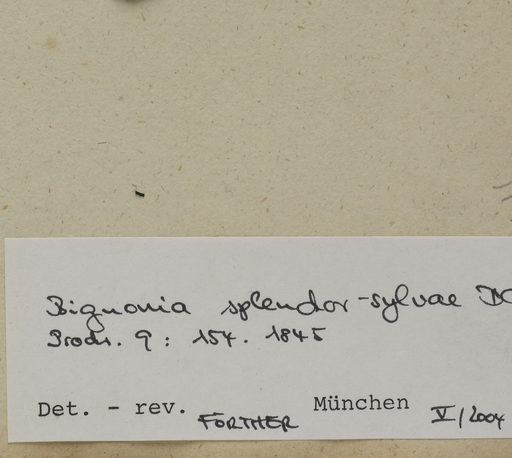 Bignonia splendor-sylvae DC
Prodr. 9: 154. 1845
Det. - rev. FÖRTHER München V/2004